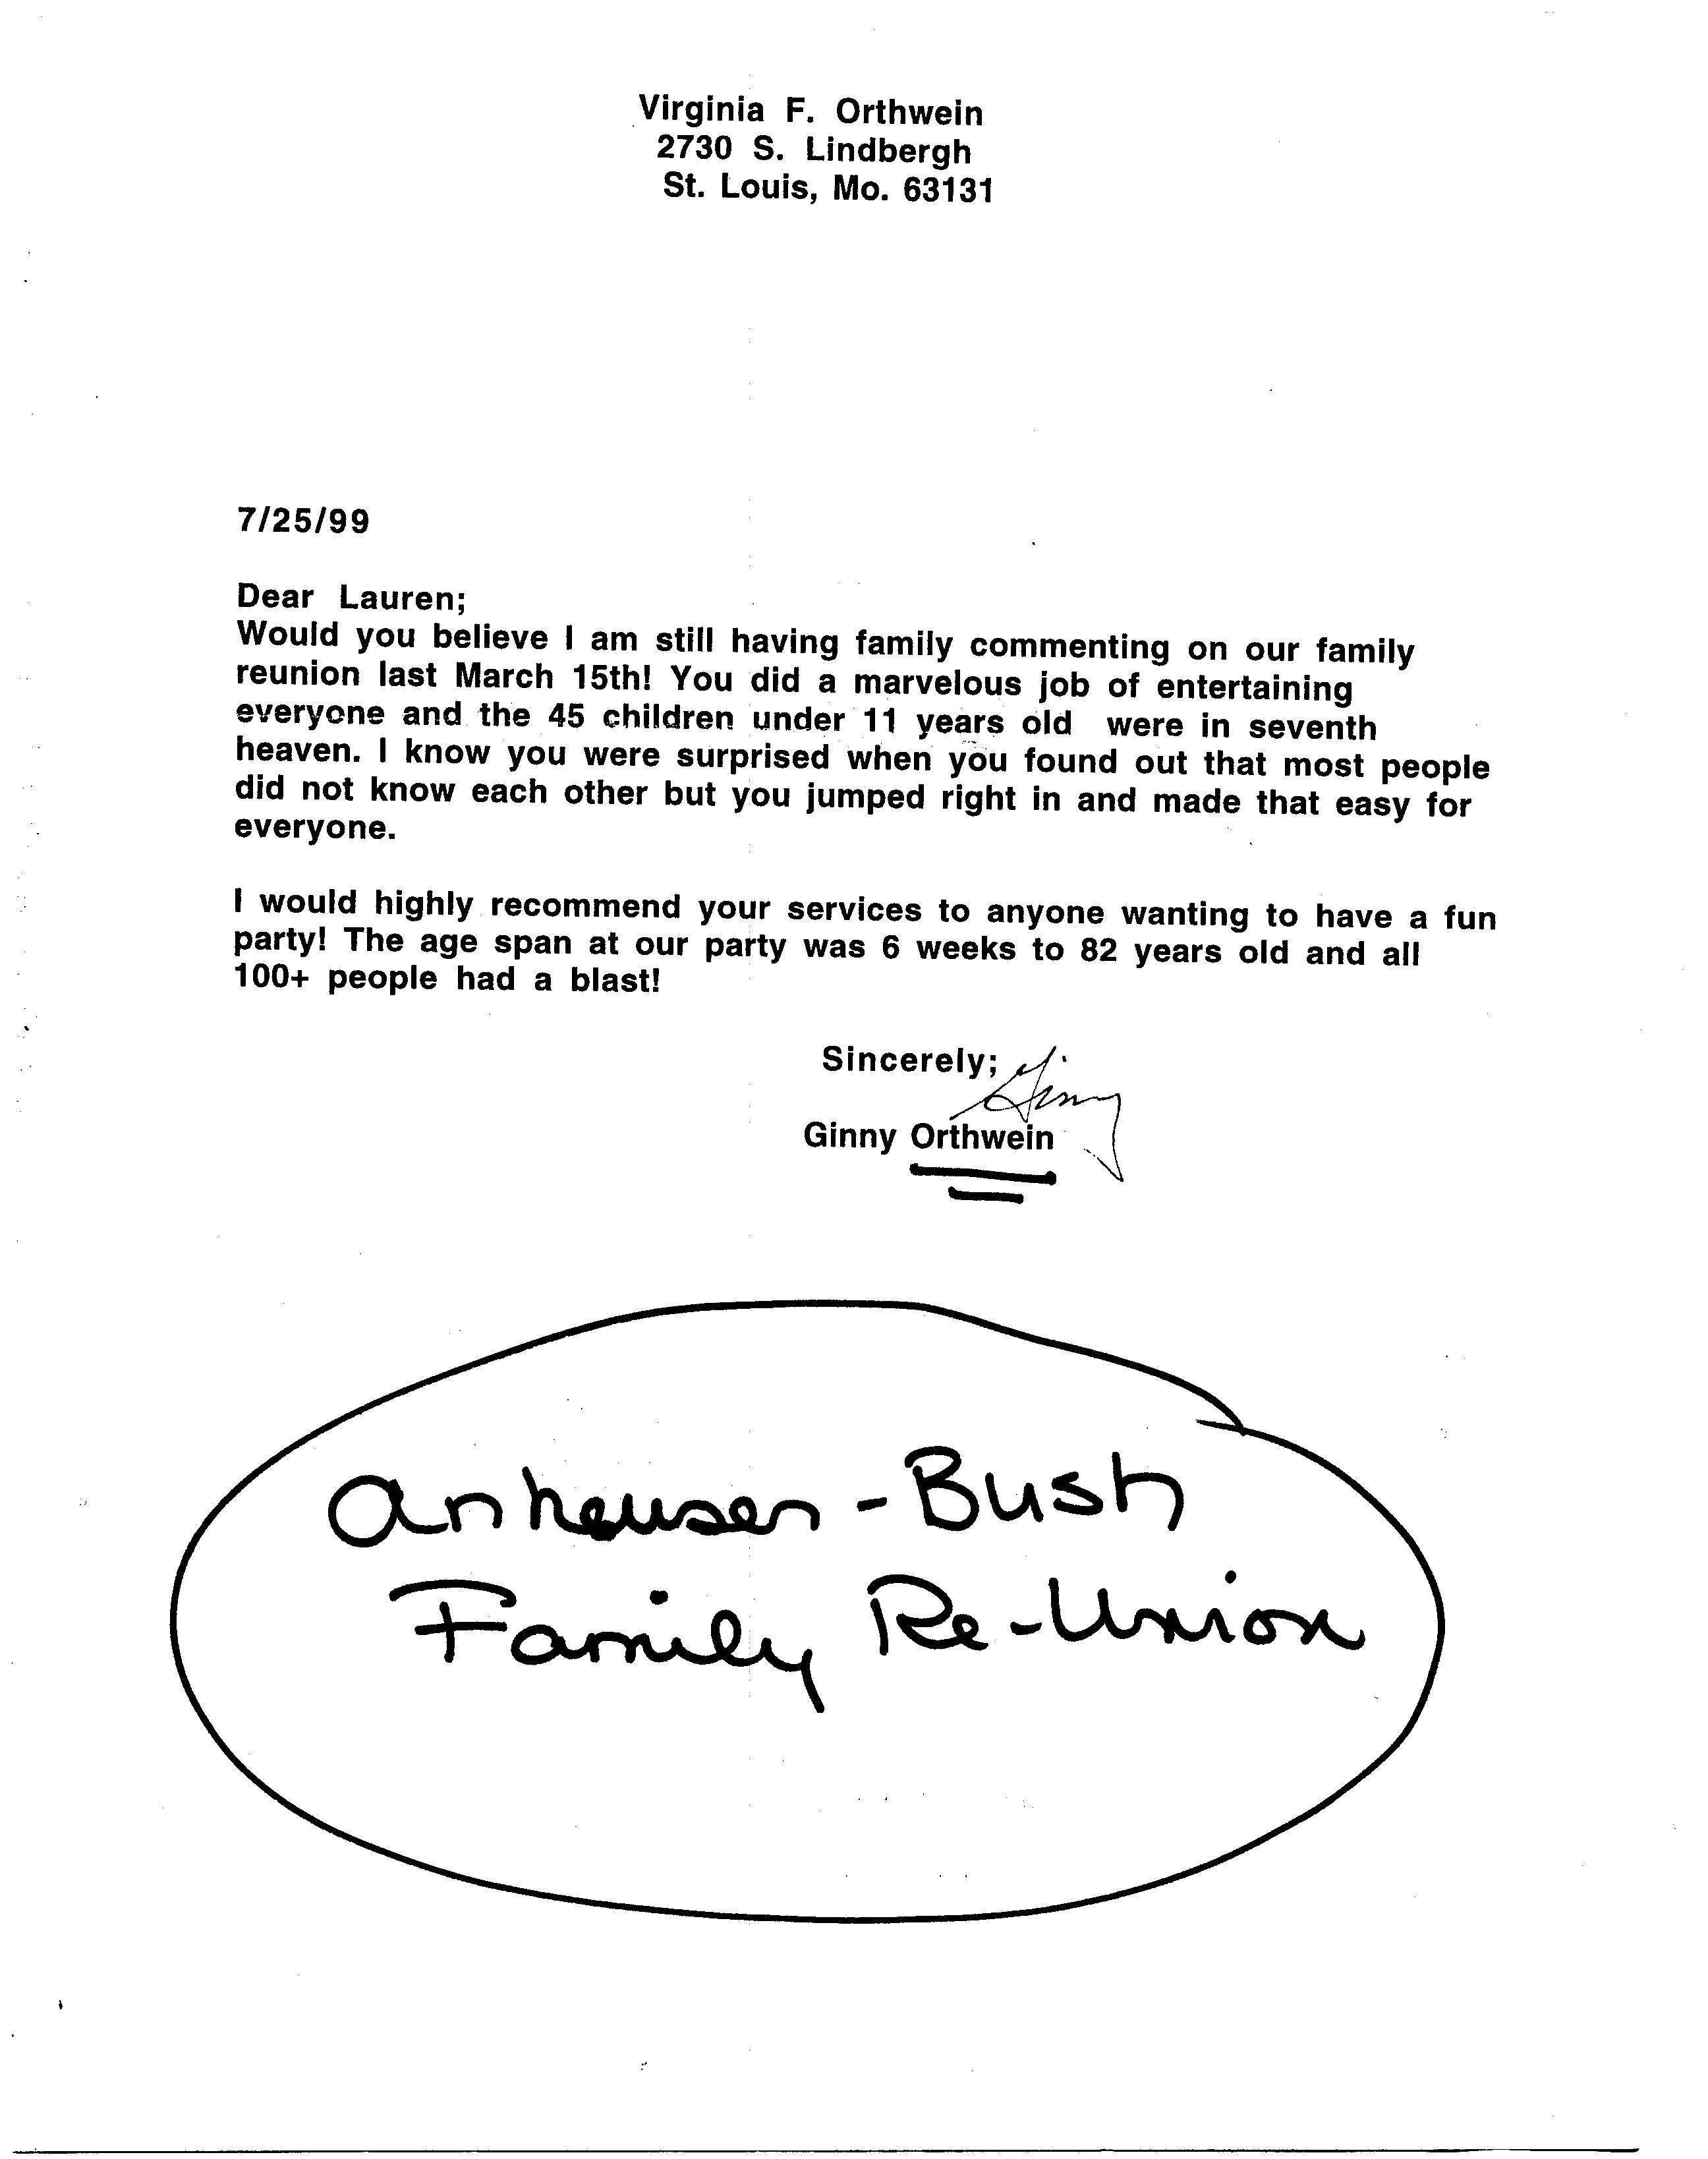 Virginia F. Orthwein
2730 S. Lindbergh
St. Louis, Mo. 63131
7/25/99
Dear Lauren;
Would you believe I am still having family commenting on our family
reunion last March 15th! You did a marvelous job of entertaining
everyone and the 45 children under 11 years old were in seventh
heaven. I know you were surprised when you found out that most people
did not know each other but you jumped right in and made that easy for
everyone.
I would highly recommend your services to anyone wanting to have a fun
party! The age span at our party was 6 weeks to 82 years old and all
100+ people had a blast!
Sincerely;
Ginny
Ginny Orthwein
anheuser-Bush
Family Re-Union